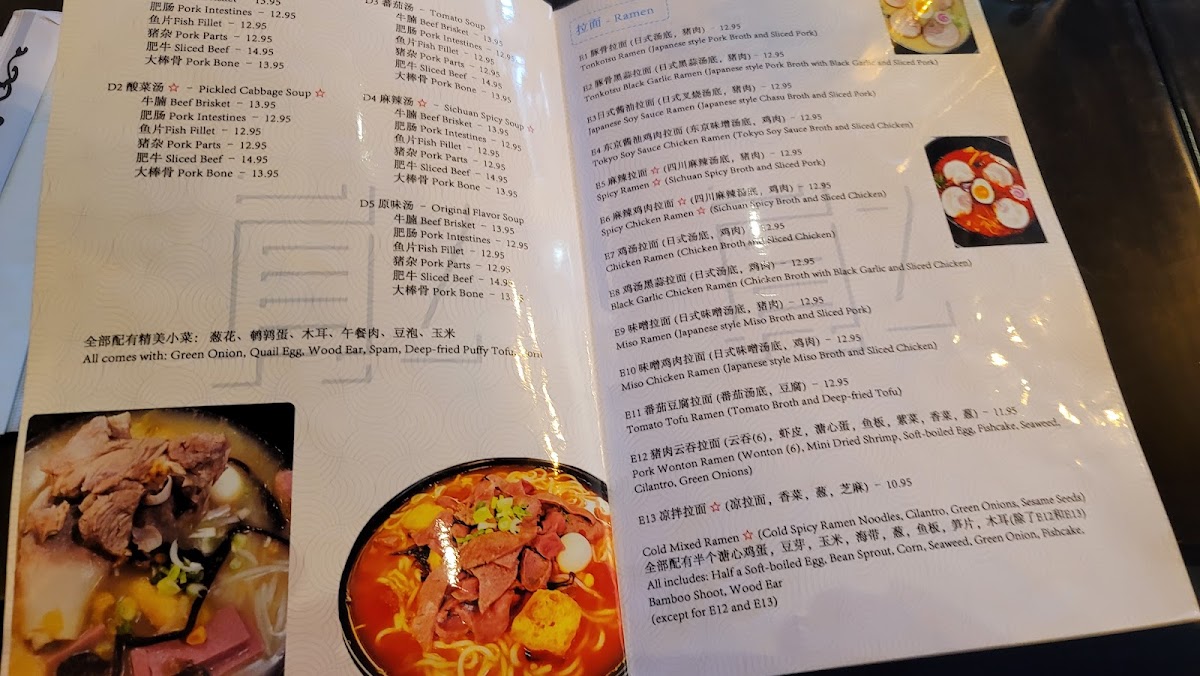 肥肠 Pork Intestines - 12.95
鱼片Fish Fillet - 12.95
猪杂 Pork Parts - 12.95
肥牛 Sliced Beef - 14.95
大棒骨 Pork Bone - 13.95
D2 酸菜汤 ☆ - Pickled Cabbage Soup ☆
牛腩 Beef Brisket - 13.95
肥肠 Pork Intestines - 12.95
鱼片Fish Fillet - 12.95
猪杂 Pork Parts - 12.95
肥牛 Sliced Beef - 14.95
大棒骨 Pork Bone - 13.95
D3 番茄汤 - Tomato Soup
牛腩 Beef Brisket - 13.95
肥肠 Pork Intestines - 12.95
鱼片Fish Fillet - 12.95
猪杂 Pork Parts - 12.95
肥牛 Sliced Beef - 14.95
大棒骨 Pork Bone - 13.95
D4 麻辣汤 ☆ - Sichuan Spicy Soup ☆
牛腩 Beef Brisket - 13.95
肥肠 Pork Intestines - 12.95
鱼片Fish Fillet - 12.95
猪杂 Pork Parts - 12.95
肥牛 Sliced Beef - 14.95
大棒骨 Pork Bone - 13.95
D5 原味汤 - Original Flavor Soup
牛腩 Beef Brisket - 13.95
肥肠 Pork Intestines - 12.95
鱼片Fish Fillet - 12.95
猪杂 Pork Parts - 12.95
肥牛 Sliced Beef - 14.95
大棒骨 Pork Bone -
全部配有精美小菜： 葱花、鹌鹑蛋、木耳、午餐肉、豆泡、玉米
All comes with: Green Onion, Quail Egg, Wood Ear, Spam, Deep-fried Puffy Tofu,
拉面 - Ramen
E1 豚骨拉面 (日式豚骨汤底，猪肉) - 12.95
Tonkotsu Ramen (Japanese style Pork Broth and Sliced Pork)
E2 豚骨黑蒜拉面 (日式黑蒜汤底，猪肉) - 12.95
Tonkotsu Black Garlic Ramen (Japanese style Pork Broth with Black Garlic and Sliced Pork)
E3日式酱油拉面 (日式叉烧汤底，猪肉) - 12.95
Japanese Soy Sauce Ramen (Japanese style Chasu Broth and Sliced Pork)
E4 东京酱油鸡肉拉面 (东京味增汤底，鸡肉) - 12.95
Tokyo Soy Sauce Chicken Ramen (Tokyo Soy Sauce Broth and Sliced Chicken)
E5 麻辣拉面 ☆ (四川麻辣汤底，猪肉) - 12.95
Spicy Ramen ☆ (Sichuan Spicy Broth and Sliced Pork)
E6 麻辣鸡肉拉面 ☆ (四川麻辣汤底，鸡肉) - 12.95
Spicy Chicken Ramen ☆ (Sichuan Spicy Broth and Sliced Chicken)
E7 鸡汤拉面 (日式汤底，鸡肉) - 12.95
Chicken Ramen (Chicken Broth and Sliced Chicken)
E8 鸡汤黑蒜拉面 (日式汤底，鸡肉) - 12.95
Black Garlic Chicken Ramen (Chicken Broth with Black Garlic and Sliced Chicken)
E9 味噌拉面 (日式味噌汤底，猪肉) - 12.95
Miso Ramen (Japanese style Miso Broth and Sliced Pork)
E10 味噌鸡肉拉面 (日式味噌汤底，鸡肉) - 12.95
Miso Chicken Ramen (Japanese style Miso Broth and Sliced Chicken)
E11 番茄豆腐拉面 (番茄汤底，豆腐) - 12.95
Tomato Tofu Ramen (Tomato Broth and Deep-fried Tofu)
E12 猪肉云吞拉面 (云吞(6)，虾皮，溏心蛋，鱼板，紫菜，香菜，葱) - 11.95
Pork Wonton Ramen (Wonton (6), Mini Dried Shrimp, Soft-boiled Egg, Fishcake, Seaweed,
Cilantro, Green Onions)
E13 凉拌拉面 ☆ (凉拉面，香菜，葱，芝麻) - 10.95
Cold Mixed Ramen ☆ (Cold Spicy Ramen Noodles, Cilantro, Green Onions, Sesame Seeds)
全部配有半个溏心鸡蛋，豆芽，玉米，海带，葱，鱼板，笋片，木耳(除了E12和E13)
All includes: Half a Soft-boiled Egg, Bean Sprout, Corn, Seaweed, Green Onion, Fishcake,
Bamboo Shoot, Wood Ear
(except for E12 and E13)